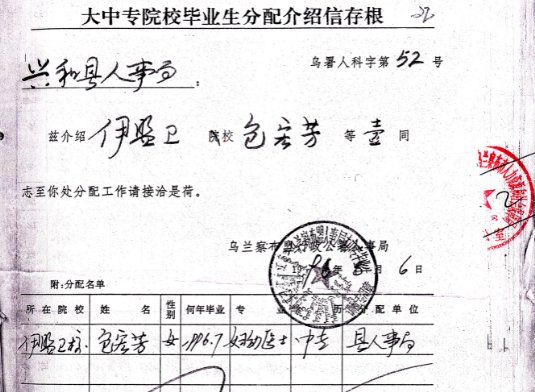 大中专院校毕业生分配介绍信存根 22
兴和县人事局：
乌署人科字第52号
兹介绍 伊盟卫 院校 包宏芳 等 壹 同
志至你处分配工作请接洽是荷。
乌兰察布盟行政公署人事局
1996年8月6日
附:分配名单
所在院校 姓名 性别 何年毕业 专业 学历 分配单位
伊盟卫校 包宏芳 女 1996.7 妇幼医士 中专 县人事局